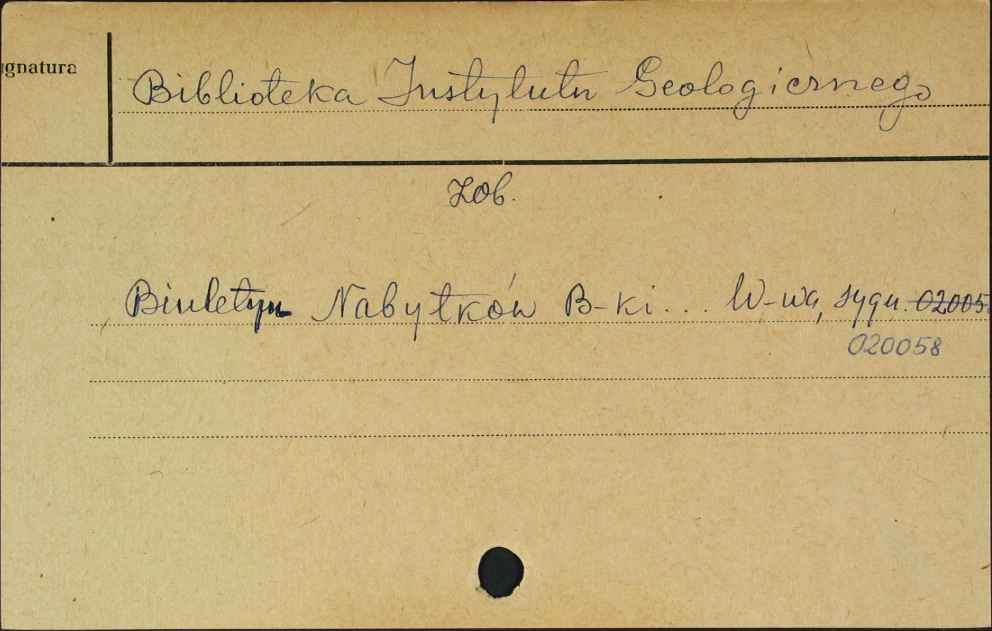 ygnatura
Biblioteka Instytutu Geologicznego
Zob.
Biuletyn Nabytków B-ki... W-wa, sygn. 02005
020058